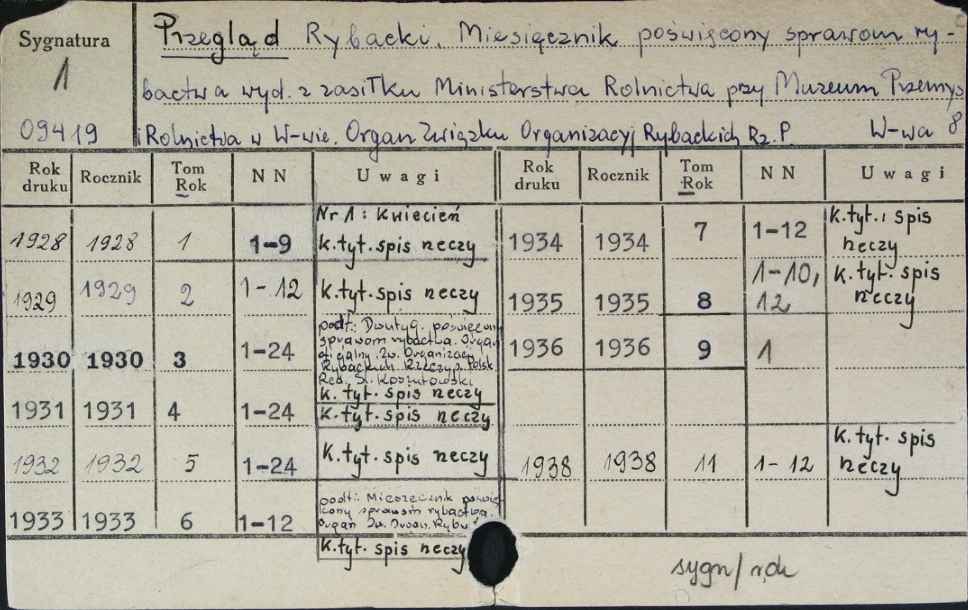 Sygnatura
1
09419
Przegląd Rybacki. Miesięcznik poświęcony sprawom ry-
bactwa wyd. z zasiłku Ministerstwa Rolnictwa przy Muzeum Przemys
i Rolnictwa w W-wie. Organ Związku Organizacyj Rybackich Rz. P. W-wa 8
Rok druku Rocznik Tom Rok NN Uwagi
1928 1928 1 1-9 Nr 1: Kwiecień
k. tyt. spis rzeczy
1929 1929 2 1-12 k. tyt. spis rzeczy
1930 1930 3 1-24 podt.: Dwutyg. poświęcony
sprawom rybactwa. Organ
oficjalny Zw. Organizacyj
Rybackich Rzeczyp. Polsk.
Red. St.
k. tyt. spis rzeczy
1931 1931 4 1-24 k. tyt. spis rzeczy
1932 1932 5 1-24 k. tyt. spis rzeczy
1933 1933 6 1-12 podt.: Miesięcznik poświę-
cony sprawom rybactwa.
Organ Zw. Organ. Ryb
k. tyt. spis rzeczy
Rok druku Rocznik Tom Rok NN Uwagi
1934 1934 7 1-12 k. tyt. i spis
rzeczy
1935 1935 8 1-10, 12 k. tyt. spis
rzeczy
1936 1936 9 1
1938 1938 11 1-12 k. tyt. spis
rzeczy
sygn/rok